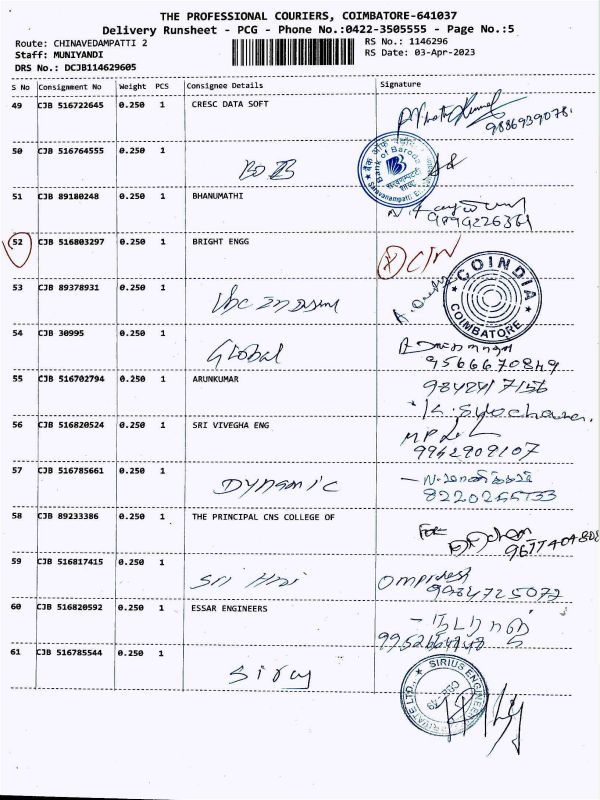 THE PROFESSIONAL COURIERS, COIMBATORE-641037
Delivery Runsheet - PCG - Phone No.:0422-3505555 - Page No.:5
Route: CHINAVEDAMPATTI 2
RS No.: 1146296
Staff: MUNIYANDI
RS Date: 03-Apr-2023
DRS No.: DCJB114629605
S No Consignment No Weight PCS Consignee Details Signature
49 CJB 516722645 0.250 1 CRESC DATA SOFT
9886939078.
50 CJB 516764555 0.250 1 BOB
Bank of Baroda
51 CJB 89180248 0.250 1 BHANUMATHI
9894226361
52 CJB 516803297 0.250 1 BRIGHT ENGG
53 CJB 89378931 0.250 1
COINDIA
COIMBATORE
54 CJB 30995 0.250 1 GLobal
9566670849
55 CJB 516702794 0.250 1 ARUNKUMAR
K. Sulochana.
56 CJB 516820524 0.250 1 SRI VIVEGHA ENG
9942909107
57 CJB 516785661 0.250 1 DYnamic
58 CJB 89233386 0.250 1 THE PRINCIPAL CNS COLLEGE OF
For
59 CJB 516817415 0.250 1 Sri Hari
9984725072
60 CJB 516820592 0.250 1 ESSAR ENGINEERS
61 CJB 516785544 0.250 1
SIRIUS ENGINEER